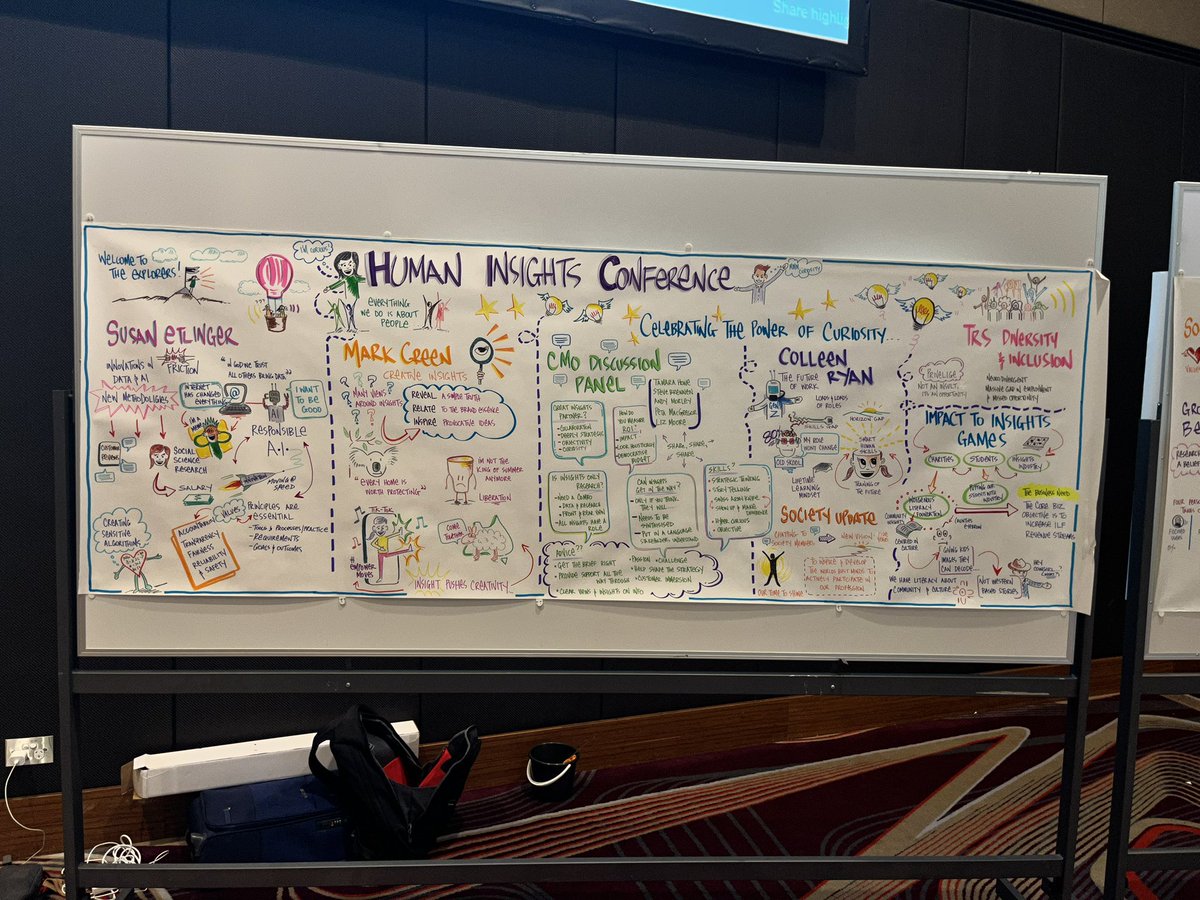 Share highlig
WELCOME TO
THE EXPLORERS!
I'M CURIOUS
HUMAN INSIGHTS CONFERENCE
EVERYTHING
WE DO IS ABOUT
PEOPLE
CELEBRATING THE POWER OF CURIOSITY...
SUSAN ETLINGER
INNOVATIONS IN
DATA & AI
FRICTION
"IN GOD WE TRUST
ALL OTHERS BRING DATA"
NEW METHODOLIGIES
INTERNET
HAS CHANGED
EVERYTHING
@
AI
I WANT
TO BE
GOOD
CUSTOMER
REVIEWS
I'M A
SOCIAL
SCIENCE
RESEARCH
RESPONSIBLE
A.I.
SALARY
MOVING @
SPEED
VALUES
PRINCIPLES ARE
ESSENTIAL
- TOOLS & PROCESSES/PRACTICE
- REQUIREMENTS
- GOALS & OUTCOMES
CREATING
SENSITIVE
ALGORITHMS
ACCOUNTABILITY
TRANSPARENCY
FAIRNESS
RELIABILITY
& SAFETY
MARK GREEN
CREATIVE INSIGHTS
MANY VIEWS
AROUND INSIGHTS
REVEAL A SIMPLE TRUTH
RELATE TO THE BRAND ESSENCE
INSPIRE PROVOCATIVE IDEAS
"EVERY HOME IS
WORTH PROTECTING"
I'M NOT THE
KING OF SUMMER
ANYMORE
LIBERATION
TIK TOK
COME
TOGETHER
#EMPOWER
MOVES
INSIGHT PUSHES CREATIVITY
CMO DISCUSSION
PANEL
TAMARA HOWE
STEVE BRENNEN
ANDY MORLEY
PETA MACGREGOR
LIZ MOORE
GREAT INSIGHTS
PARTNER?
- COLLABORATION
- DEEPLY STRATEGIC
- OBJECTIVITY
- CURIOSITY
HOW DO
YOU MEASURE
ROI?
- IMPACT
- LOOK HOLISTICALLY
- DEMOCRATISE
BUDGET
SHARE, SHARE,
SHARE
IS INSIGHTS ONLY
RESEARCH?
- NEED A COMBO
- DATA & RESEARCH
- PROFIT & REVENUE
- ALL INSIGHTS HAVE A
ROLE
CAN INSIGHTS
GET IN THE WAY?
- ONLY IF YOU THINK
THEY WILL
- NEEDS TO BE
SYNTHESISED
- PUT IN A LANGUAGE
STAKEHOLDERS UNDERSTAND
SKILLS?
- STRATEGIC THINKING
- STORYTELLING
- SWISS ARMY KNIFE
- SHOW UP & MAKE A
DIFFERENCE
- HYPER CURIOUS
- OBJECTIVE
ADVICE??
- GET THE BRIEF RIGHT
- PROVIDE SUPPORT ALL THE
WAY THROUGH
- CLEAR VIEWS & INSIGHTS ON INFO
- PASSION & CHALLENGE
- HELP SHAPE THE STRATEGY
- CUSTOMER IMMERSION
COLLEEN
RYAN
THE FUTURE
OF WORK
LOADS & LOADS
OF ROLES
SKILLS GAP
HORIZON GAP
MY ROLE
WON'T CHANGE
OLD SKOOL
SMART
HUMAN
SKILLS
LIFETIME LEARNING
MINDSET
TRAINING OF
THE FUTURE
SOCIETY UPDATE
CHATTING TO
SOCIETY MEMBERS
NEW VISION
TO INSPIRE & DEVELOP
THE WORLDS BEST MINDS TO
ACTIVELY PARTICIPATE IN
OUR PROFESSION
OUR TIME TO SHINE
TRS DIVERSITY
& INCLUSION
PRIVELIGE
NOT AN INSULT,
IT'S AN OPPORTUNITY
NEURO DIVERGENT
MASSIVE GAP IN EMPLOYMENT
& MISSED OPPORTUNITY
IMPACT TO INSIGHTS
GAMES
CHARITIES
STUDENTS
INSIGHTS
INDUSTRY
INDIGENOUS
LITERACY
FOUNDATION
THE BUSINESS NEED
THE CORE BIZ
OBJECTIVE IS TO
INCREASE ILF
REVENUE STREAMS
COMMUNITY INSIGHTS
CENTRED IN
CULTURE
GIVING KIDS
IMAGES THEY
CAN DECODE...
WE HAVE LITERACY ABOUT
COMMUNITY & CULTURE
NOT WESTERN
BASED STORIES